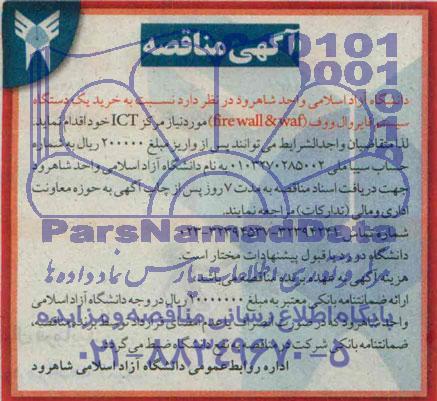 آگهی مناقصه
دانشگاه آزاد اسلامی واحد شاهرود در نظر دارد نسبت به خرید یک دستگاه
سیستم فایروال ووف (fire wall & waf) مورد نیاز مرکز ICT خود اقدام نماید.
لذا متقاضیان واجد الشرایط می توانند پس از واریز مبلغ ۲۰۰۰۰۰ ریال به شماره
حساب سیبا ملی ۰۱۰۳۲۷۰۲۸۵۰۰۲ به نام دانشگاه آزاد اسلامی واحد شاهرود
جهت دریافت اسناد مناقصه به مدت ۷ روز پس از چاپ آگهی به حوزه معاونت
اداری و مالی (تدارکات) مراجعه نمایند.
شماره تماس
ParsNamadData
دانشگاه در رد یا قبول پیشنهادات مختار است.
هزینه آگهی به عهده برنده مناقصه می باشد.
ارائه ضمانتنامه بانکی معتبر به مبلغ ریال در وجه دانشگاه آزاد اسلامی
پایگاه اطلاع رسانی مناقصه و مزایده
واحد شاهرود که در صورت انصراف یا عدم امضای قرارداد توسط برنده مناقصه،
ضمانتنامه بانکی شرکت در مناقصه به نفع دانشگاه ضبط می گردد.
۰۲۱-۸۸۳۴۹۶۷۰-۵
اداره روابط عمومی دانشگاه آزاد اسلامی شاهرود